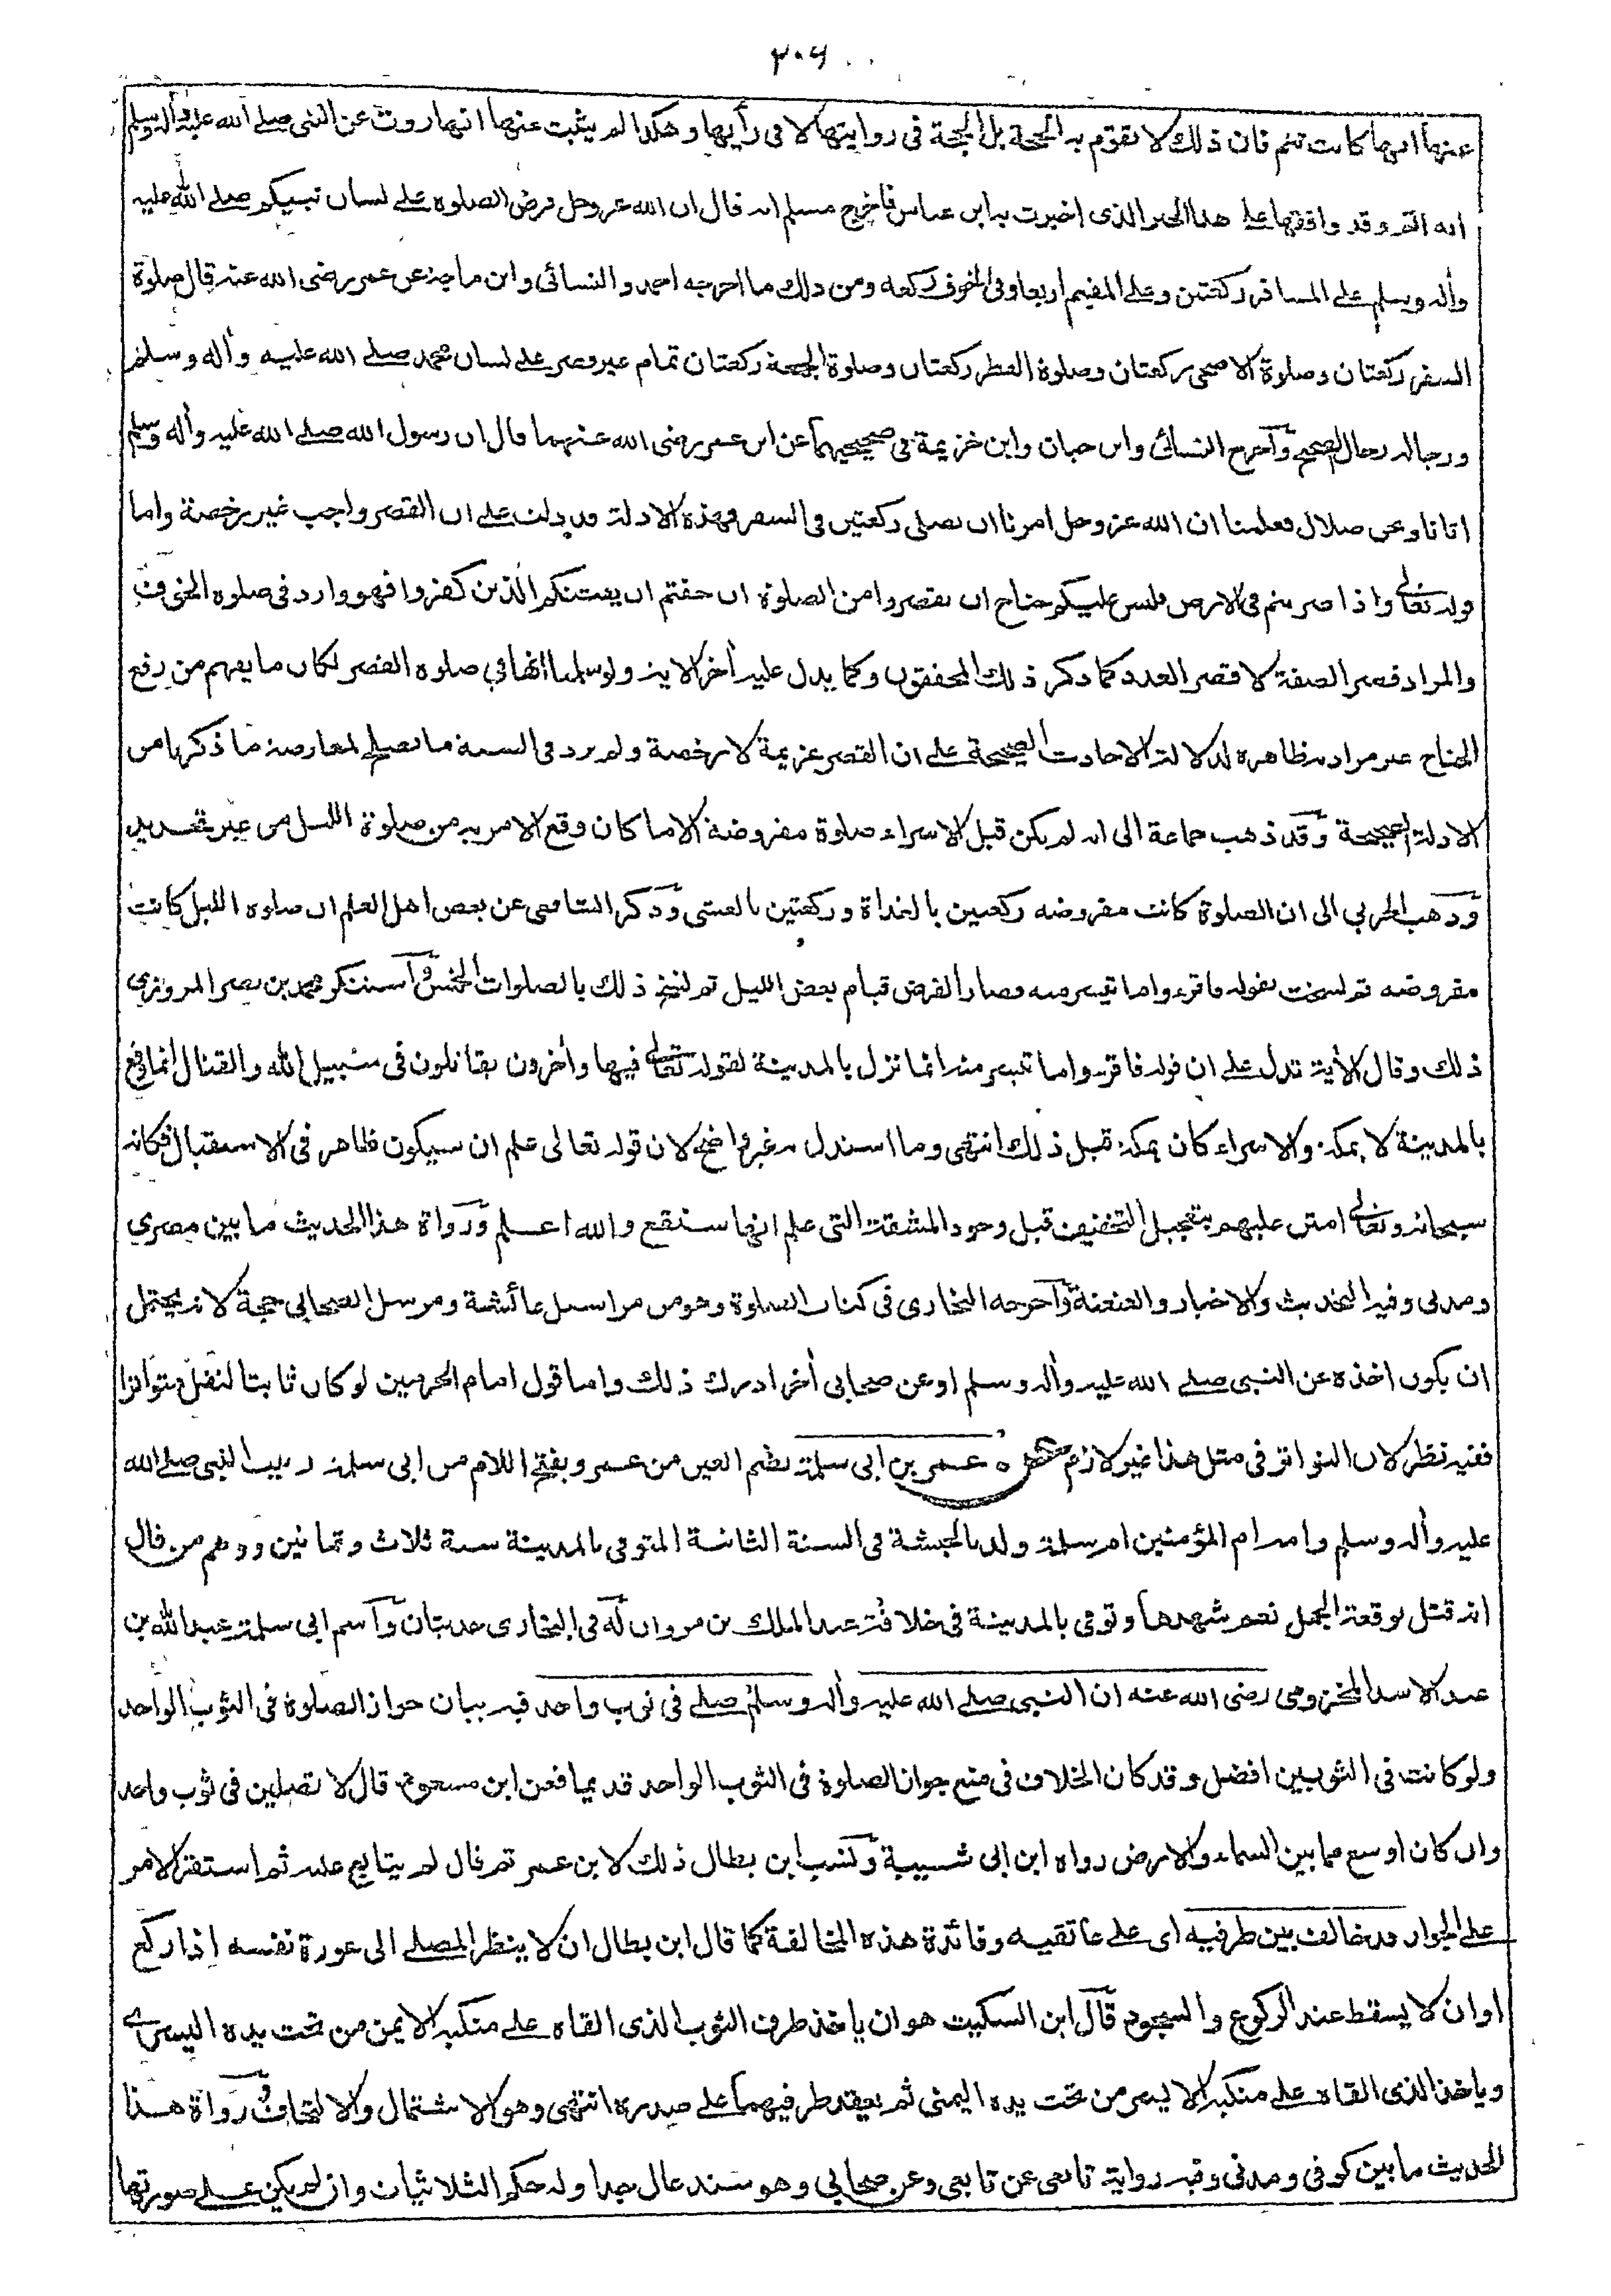 ٢٠٦
عنها انها كانت تتم فان ذلك لا تقوم به الحجة بل الحجة فى روايتها لا فى رأيها وهكذا لم يثبت عنها انها روت عن النبى صلے الله عليه وأله وسلم
انه اتم وقد وافقها علے هذا الخبر الذى اخبرت به ابن عباس فاخرج مسلم انه قال ان الله عز وجل فرض الصلوة علے لسان نبيكم صلے الله عليه
وأله وسلم علے المسافر ركعتين وعلے المقيم اربعا وفى الخوف ركعة ومن ذلك ما اخرجه احمد والنسائى وابن ماجة عن عمر رضى الله عنه قال صلوة
السفر ركعتان وصلوة الاضحى ركعتان وصلوة الفطر ركعتان وصلوة الجمعة ركعتان تمام غير قصر على لسان محمد صلے الله عليه وأله وسلم
ورجاله رجال الصحيح وآخرج النسائى وابن حبان وابن خزيمة فى صحيحيهما عن ابن عمر رضى الله عنهما قال ان رسول الله صلے الله عليه وأله وسلم
اتانا ونحن ضلال فعلمنا ان الله عز وجل امرنا ان نصلى ركعتين فى السفر فهذه الادلة قد دلت على ان القصر واجب غير رخصة واما
قوله تعالے واذا ضربتم فى الارض فليس عليكم جناح ان تقصروا من الصلوة ان خفتم ان يفتنكم الذين كفروا فهو وارد فى صلوة الخوف
والمراد قصر الصفة لا قصر العدد كما ذكر ذلك المحققون وكما يدل عليه أخر الاية ولو سلمنا انها في صلوة القصر لكان ما يفهم من رفع
الجناح غير مراد به ظاهره لدلالة الاحاديث الصحيحة علے ان القصر عزيمة لا رخصة ولم يرد فى السنة ما يصلح لمعارضة ما ذكرنا من
الادلة الصحيحة وقد ذهب جماعة الى انه لم يكن قبل الاسراء صلوة مفروضة الا ما كان وقع الامر به من صلوة الليل من غير تحديد
وذهب الحربي الى ان الصلوة كانت مفروضة ركعتين بالغداة وركعتين بالعشى وذكر الشافعى عن بعض اهل العلم ان صلوة الليل كانت
مفروضة ثم نسخت بقوله فاقرءوا ما تيسر منه فصار الفرض قيام بعض الليل ثم نسخ ذلك بالصلوات الخمس وآستنكر محمد بن نصر المروزي
ذلك وقال الأية تدل علے ان قوله فاقرءوا ما تيسر منه انما نزل بالمدينة لقوله تعالے فيها وأخرون يقاتلون فى سبيل الله والقتال انما وقع
بالمدينة لا بمكة والاسراء كان بمكة قبل ذلك انتهى وما استدل به غير واضح لان قوله تعالى علم ان سيكون ظاهر فى الاستقبال فكانه
سبحانه وتعالے امتن عليهم بتعجيل التخفيف قبل وجود المشقة التى علم انها ستقع والله اعلم ورواة هذا الحديث ما بين مصرى
ومدنى وفيه التحديث والاخبار والعنعنة وآخرجه البخارى فى كتاب الصلوة وهو من مراسيل عائشة ومرسل الصحابى حجة لانه يحتمل
ان يكون اخذه عن النبى صلے الله عليه وأله وسلم او عن صحابى أخر ادرك ذلك واما قول امام الحرمين لو كان ثابتا لنقل متواترا
ففيه نظر لان التواتر فى مثل هذا غير لازم عمر بن ابى سلمة بضم العين من عمر وبفتح اللام من ابى سلمة ربيب النبى صلے الله
عليه وأله وسلم وامه ام المؤمنين ام سلمة ولد بالحبشة فى السنة الثانية المتوفى بالمدينة سنة ثلاث وثمانين ووهم من قال
انه قتل بوقعة الجمل نعم شهدها وتوفى بالمدينة فى خلافة عبد الملك بن مروان له فى البخارى حديثان وآسم ابى سلمة عبد الله بن
عبد الاسد المخزومى رضى الله عنه ان النبى صلے الله عليه وأله وسلم صلے فى ثوب واحد فيه بيان جواز الصلوة فى الثوب الواحد
ولو كانت فى الثوبين افضل وقد كان الخلاف فى منع جواز الصلوة فى الثوب الواحد قديما فعن ابن مسعود قال لا تصلين فى ثوب واحد
وان كان اوسع مما بين السماء والارض رواه ابن ابى شيبة ونسب ابن بطال ذلك لابن عمر ثم قال لم يتابع عليه ثم استقر الامر
علے الجواز قد خالف بين طرفيه اى على عاتقيه وفائدة هذه المخالفة كما قال ابن بطال ان لا ينظر المصلے الى عورة نفسه اذا ركع
او ان لا يسقط عند الركوع والسجود قال ابن السكيت هو ان ياخذ طرف الثوب الذى القاه علے منكبه الايمن من تحت يده اليسرى
وياخذ الذى القاه علے منكبه الايسر من تحت يده اليمنى ثم يعقد طرفيهما علے صدره انتهى وهو الاشتمال والالتحاف ورواة هذا
الحديث ما بين كوفى ومدنى وفيه رواية تابعى عن تابعى وعن صحابى وهو سند عال جدا وله حكم الثلاثيات وان لم يكن علے صورتها